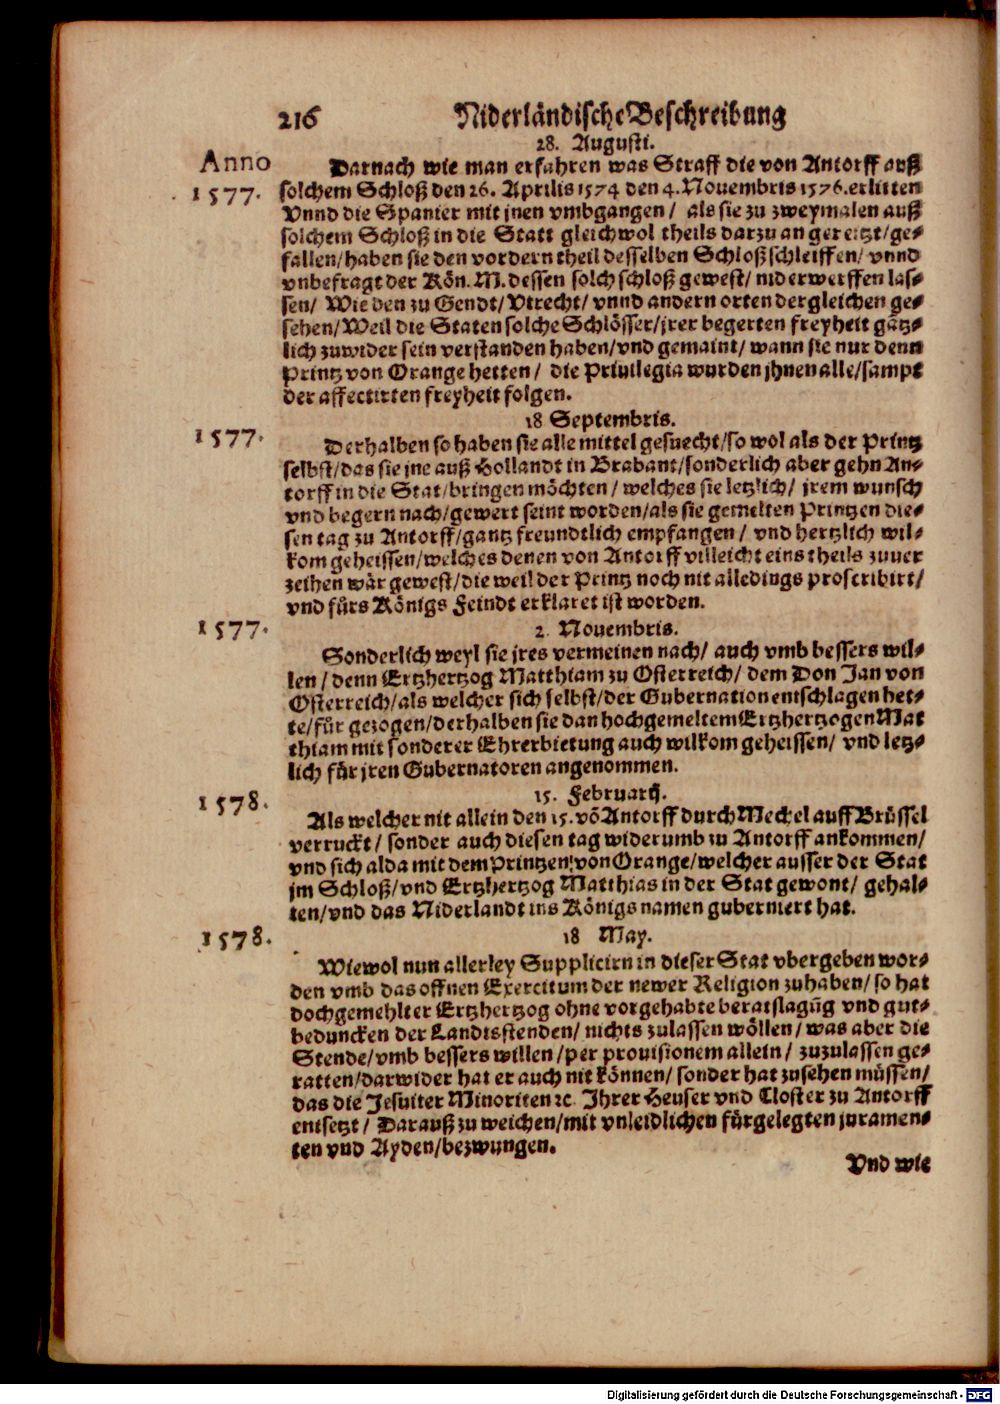 216 Niderländische Beschreibung
28. Augusti.
Anno
1577.
Darnach wie man erfahren was Straff die von Antorff auß
solchem Schloß den 26. Aprilis 1574 den 4. Nouembris 1576. erlitten
Vnnd die Spanier mit jnen vmbgangen / als sie zu zweymalen auß
solchem Schloß in die Statt gleichwol theils darzu angereitzt/ge-
fallen/haben sie den vordern theil desselben Schloß schleiffen/ vnnd
vnbefragt der Kön. M. dessen solch schloß gewest/ niderwerffen las-
sen/ Wie den zu Gendt/ Vtrecht/ vnnd andern orten dergleichen ge-
sehen/ Weil die Staten solche Schlösser/jrer begerten freyheit gãtz-
lich zuwider sein verstanden haben/vnd gemaint/ wann sie nur denn
Printz von Orange hetten / die Priuilegia wurden jhnen alle/sampt
der affectirten freyheit folgen.
18 Septembris.
1577.
Derhalben so haben sie alle mittel gesuecht/so wol als der Printz
selbst/das sie jne auß Hollandt in Brabant/sonderlich aber gehn An-
torff in die Stat/bringen möchten / welches sie letzlich/ jrem wunsch
vnd begern nach/gewert seint worden/als sie gemelten Printzen die-
sen tag zu Antorff/gantz freundtlich empfangen / vnd hertzlich wil-
kom geheissen/welches denen von Antorff villeicht eins theils zuuer
zeihen wär gewest/die weil der Printz noch nit alledings proscribirt/
vnd fůrs Königs Feindt erklaret ist worden.
1577.
2. Nouembris.
Sonderlich weyl sie jres vermeinen nach/ auch vmb bessers wil-
len / denn Ertzhertzog Matthiam zu Osterreich/ dem Don Jan von
Osterreich/als welcher sich selbst/der Gubernation entschlagen het-
te/fůr gezogen/derhalben sie dan hochgemeltem Ertzhertzogen Mat
thiam mit sonderer Ehrerbietung auch wilkom geheissen/ vnd letz-
lich fůr jren Gubernatoren angenommen.
15. Februarij.
1578.
Als welcher nit allein den 15. võ Antorff durch Mechel auff Brüssel
verruckt / sonder auch diesen tag widerumb zu Antorff ankommen/
vnd sich alda mit dem Printzen von Orange/welcher ausser der Stat
jm Schloß/vnd Ertzhertzog Matthias in der Stat gewont/ gehal-
ten/vnd das Niderlandt ins Königs namen guberniert hat.
1578.
18 May.
Wiewol nun allerley Supplicirn in dieser Stat vbergeben wor-
den vmb das offnen Exercitum der newer Religion zuhaben/ so hat
hochgemehlter Ertzhertzog ohne vorgehabte beratslagũg vnd gut-
beduncken der Landtsstenden/ nichts zulassen wöllen / was aber die
Stende/vmb bessers willen / per prouisionem allein / zuzulassen ge-
ratten/darwider hat er auch nit können/ sonder hat zusehen müssen/
das die Jesuiter Minoriten ꝛc. Ihrer Heuser vnd Closter zu Antorff
entsetzt / Darauß zu weichen/mit vnleidlichen fürgelegten juramen-
ten vnd Ayden/bezwungen.
Vnd wie
Digitalisierung gefördert durch die Deutsche Forschungsgemeinschaft - DFG